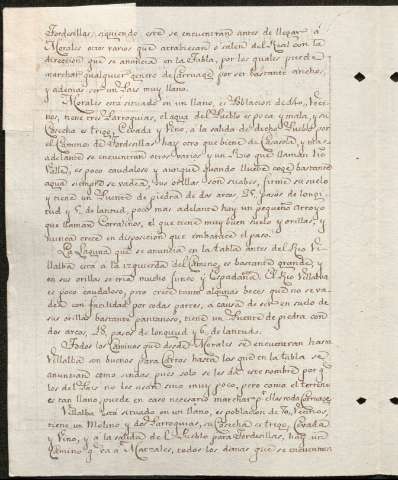 Tordesillas; siguiendo este se encuentran antes de llegar á
Morales otro varios que atraviesan o salen del Real con la
direccion que se anuncia en la Tabla, por los quales puede
marchar qualquier genero de Carruage por ser bastante anchos,
y ademas ser un Pais muy llano.
Morales esta situado en un llano, es Poblacion de Veci-
nos, tiene tres Parroquias, el agua del Pueblo es poca y mala, y su
Cosecha es trigo, Cevada y Vino, a la salida de dicho Pueblo por
el Camino de Tordesillas hay otro que biene de y mas
adelante se encuentran otros varios y un Rio que llaman
es poco caudaloso y aunque quando llueve coge bastante
agua siempre se vadea, sus orillas son suabes, firme su suelo
y tiene un Puente de piedra de dos arcos, pasos de longi-
tud y de latitud, poco mas adelante hay un pequeño Arroyo
que llaman el que tiene muy buen suelo y orillas, y
nunca crece en disposicion que embarace el paso.
La Laguna que se anuncia en la tabla antes del Rio Vi-
llalba esta a la izquierda del Camino, es bastante grande y
en sus orillas se cria mucho Junco y Espadaña. El Rio Villalba
es poco caudaloso, pero crece tanto algunas beces que no se va-
dea con facilidad por todas partes, a causa de ser en suelo de
sus orillas bastante pantanoso, tiene un Puente de piedra con
dos arcos, 28, pasos de longitud y 6, de latitud.
Todos los Caminos que desde Morales se encuentran hasta
Villalba son buenos para Carros hasta los que en la tabla se
anuncian como sendas, pues solo se les dá este nombre por q.e
los del Pais no les usan sino muy poco, pero como el terreno
es tan llano, puede en caso necesario marchar p.r ellas toda Carruage.
Villalba está situado en un llano, es poblacion de 70, Vecinos,
tiene un Molino y dos Parroquias, su Cosecha es trigo, Cevada
y Vino, y a la salida de el Pueblo para Tordesillas, hay un
Camino q.e va a todos los demas que se encuentran